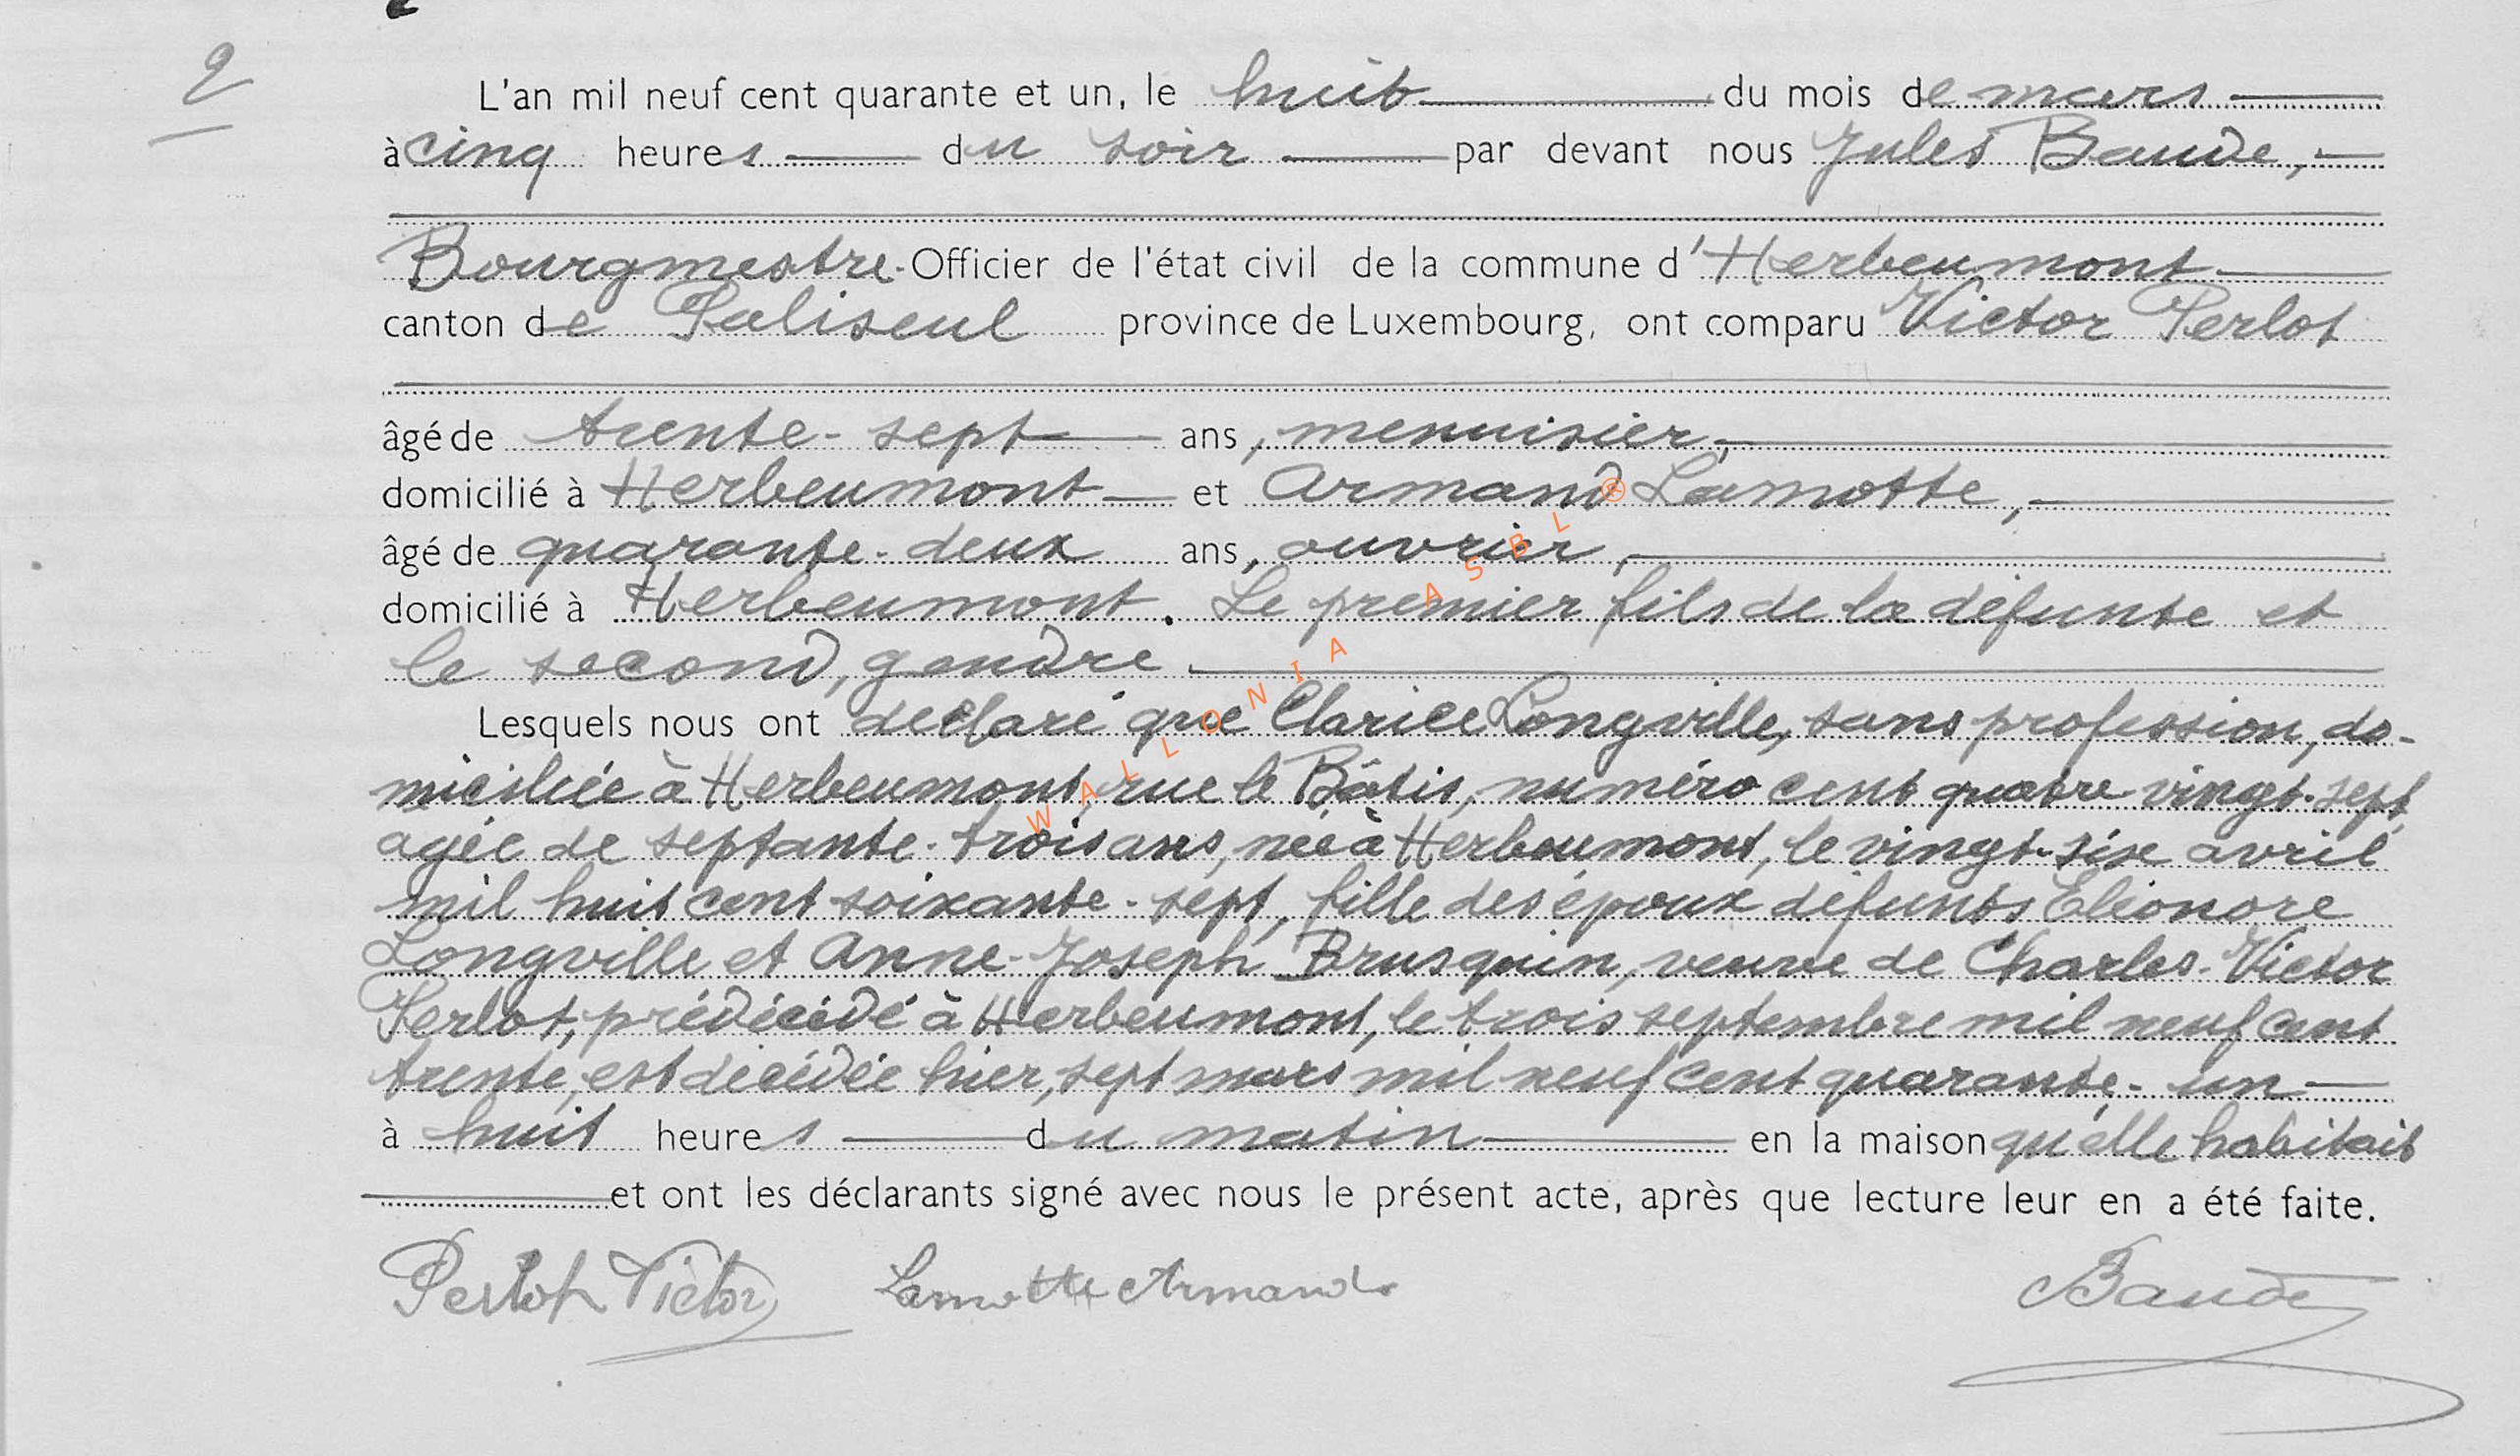 2
L'an mil neuf cent quarante et un, le huit du mois de mars
à cinq heures du soir par devant nous Jules Baude,
Bourgmestre-Officier de l'état civil de la commune d'Herbeumont
canton de Paliseul province de Luxembourg, ont comparu Victor Perlot
âgé de trente-sept ans, menuisier,
domicilié à Herbeumont et Armand Lamotte,
âgé de quarante-deux ans, ouvrier,
domicilié à Herbeumont. Le premier fils de la défunte et
le second, gendre
Lesquels nous ont declaré que Clarice Longville, sans profession, do-
miciliée à Herbeumont, rue le Bâtis, numéro cent quatre vingt-sept
agée de septante-trois ans, née à Herbeumont, le vingt-six avril
mil huit cent soixante-sept, fille des époux défunts Eléonore
Longville et Anne-Joseph Brusquin, veuve de Charles-Victor
Perlot, prédécédé à Herbeumont, le trois septembre mil neuf cent
trente, est décédée hier, sept mars mil neuf cent quarante-un
à huit heures du matin en la maison qu'elle habitait
et ont les déclarants signé avec nous le présent acte, après que lecture leur en a été faite.
Perlot Victor Lamotte Armand Baude
WALLONIA ASBL ®